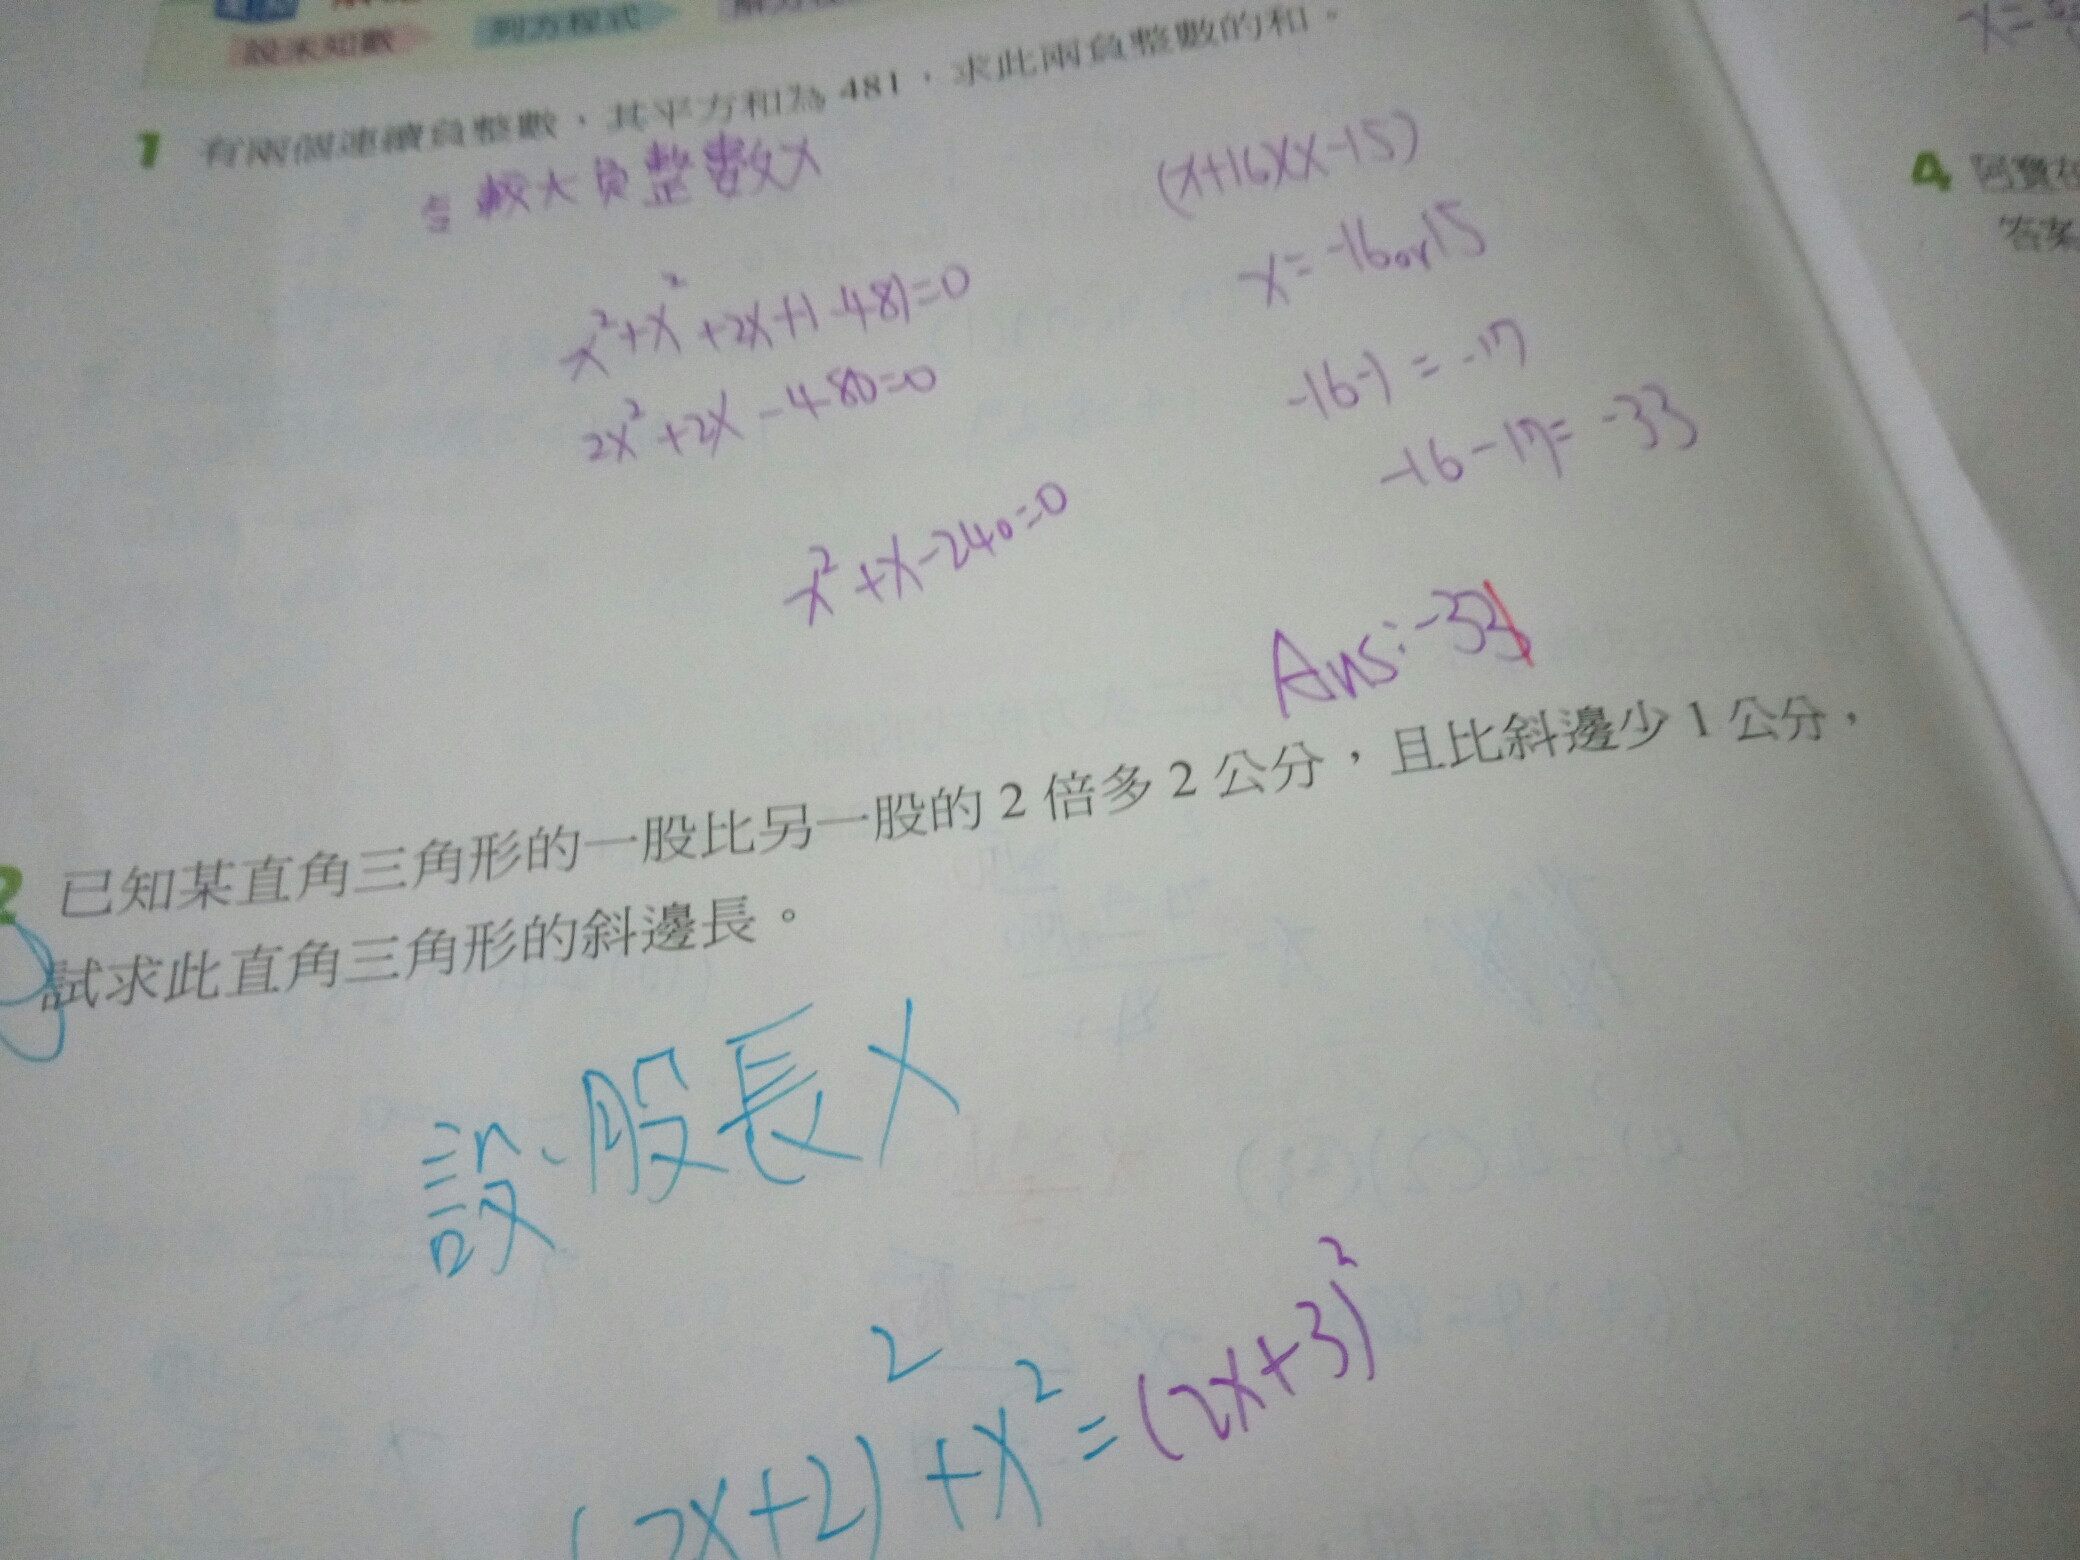 設未知數 列方程式
1 有兩個連續負整數，其平方和為 481，求此兩負整數的和。
較大負整數x
x²+x²+2x+1-481=0
2x²+2x-480=0
x²+x-240=0
(x+16)(x-15)
x=-16or15
-16-1=-17
-16-17=-33
Ans:-33
2 已知某直角三角形的一股比另一股的 2 倍多 2 公分，且比斜邊少 1 公分，
試求此直角三角形的斜邊長。
設、股長x
(2x+2)²+x²=(2x+3)²
x=
4 阿寶
答案